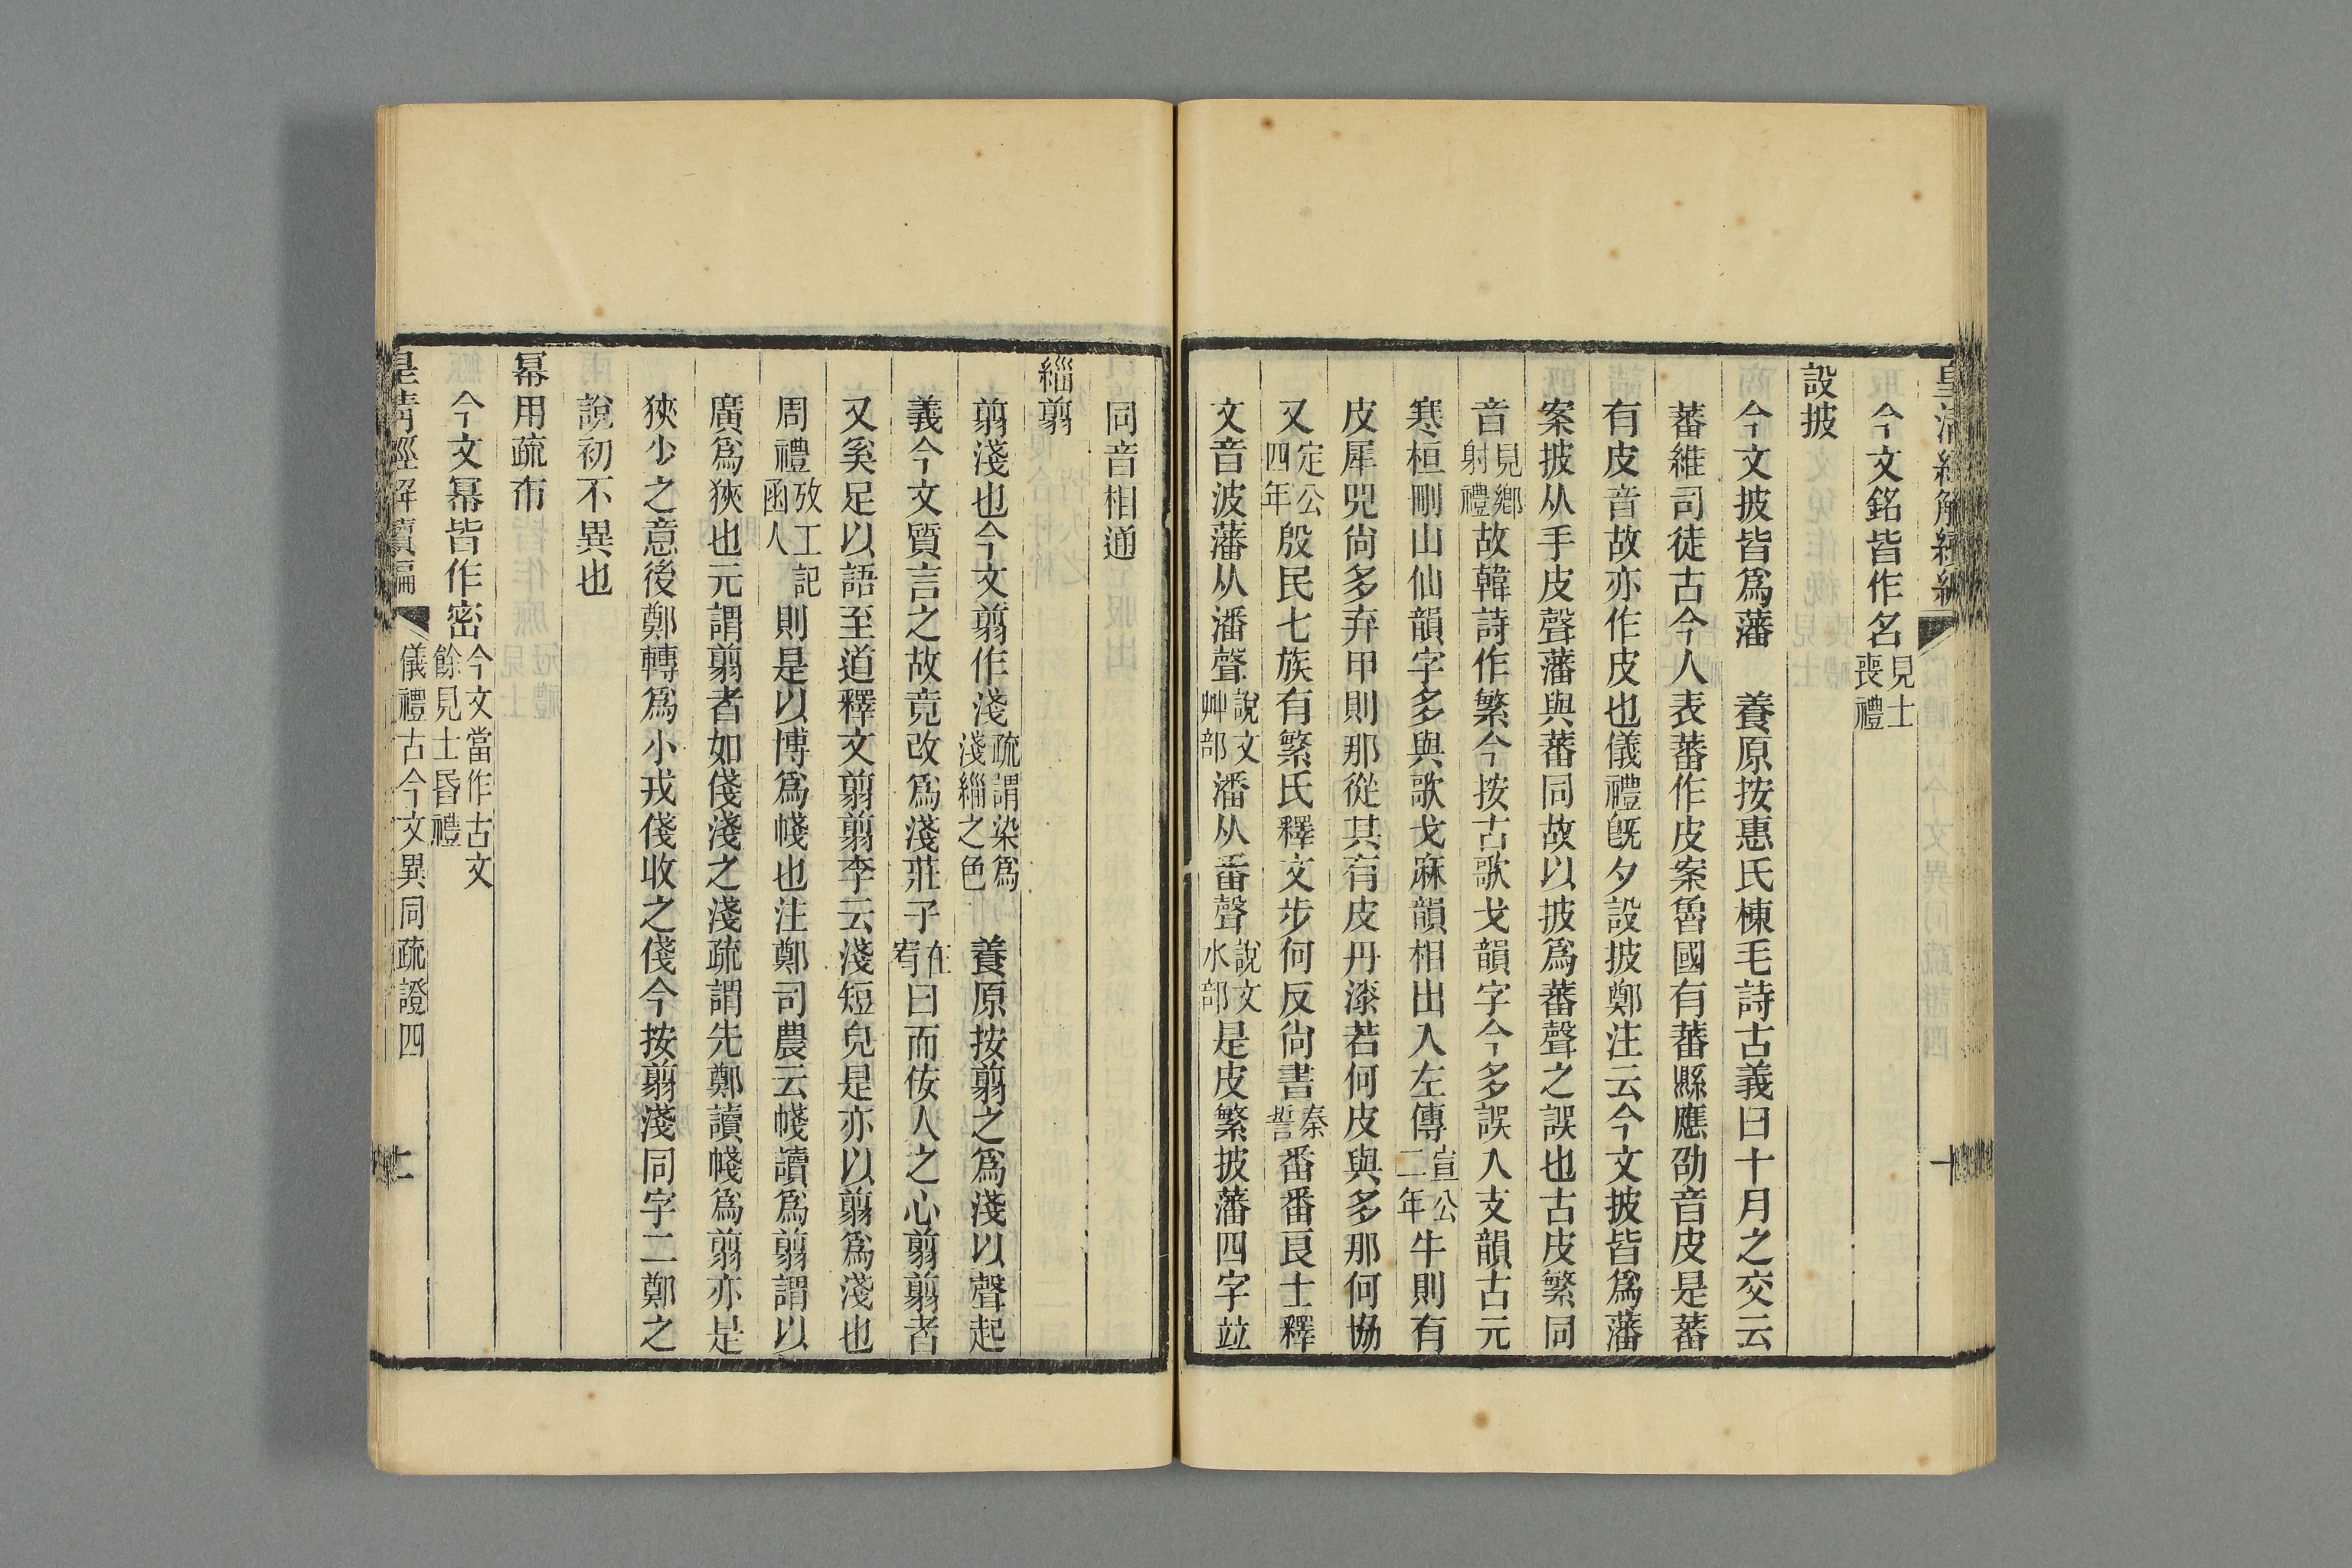 皇清經解續編
十
今文銘皆作名見士喪禮
設披
今文披皆爲藩　養原按惠氏棟毛詩古義曰十月之交云
蕃維司徒古今人表蕃作皮案魯國有蕃縣應劭音皮是蕃
有皮音故亦作皮也儀禮旣夕設披鄭注云今文披皆爲藩
案披从手皮聲藩與蕃同故以披爲蕃聲之誤也古皮繁同
音見鄉射禮故韓詩作繁今按古歌戈韻字今多誤入支韻古元
寒桓刪山仙韻字多與歌戈麻韻相出入左傳宣公二年牛則有
皮犀兕尙多弃甲則那從其有皮丹漆若何皮與多那何協
又定公四年殷民七族有繁氏釋文步何反尙書秦誓番番良士釋
文音波藩从潘聲說文艸部潘从番聲說文水部是皮繁披藩四字竝
同音相通
緇翦
翦淺也今文翦作淺疏謂染爲淺緇之色　養原按翦之爲淺以聲起
義今文質言之故竟改爲淺莊子在宥曰而佞人之心翦翦者
又奚足以語至道釋文翦翦李云淺短皃是亦以翦爲淺也
周禮攷工記函人則是以博爲帴也注鄭司農云帴讀爲翦謂以
廣爲狹也元謂翦者如俴淺之淺疏謂先鄭讀帴爲翦亦是
狹少之意後鄭轉爲小戎俴收之俴今按翦淺同字二鄭之
說初不異也
冪用疏布
今文冪皆作密今文當作古文餘見士昏禮
皇清經解續編
儀禮古今文異同疏證四